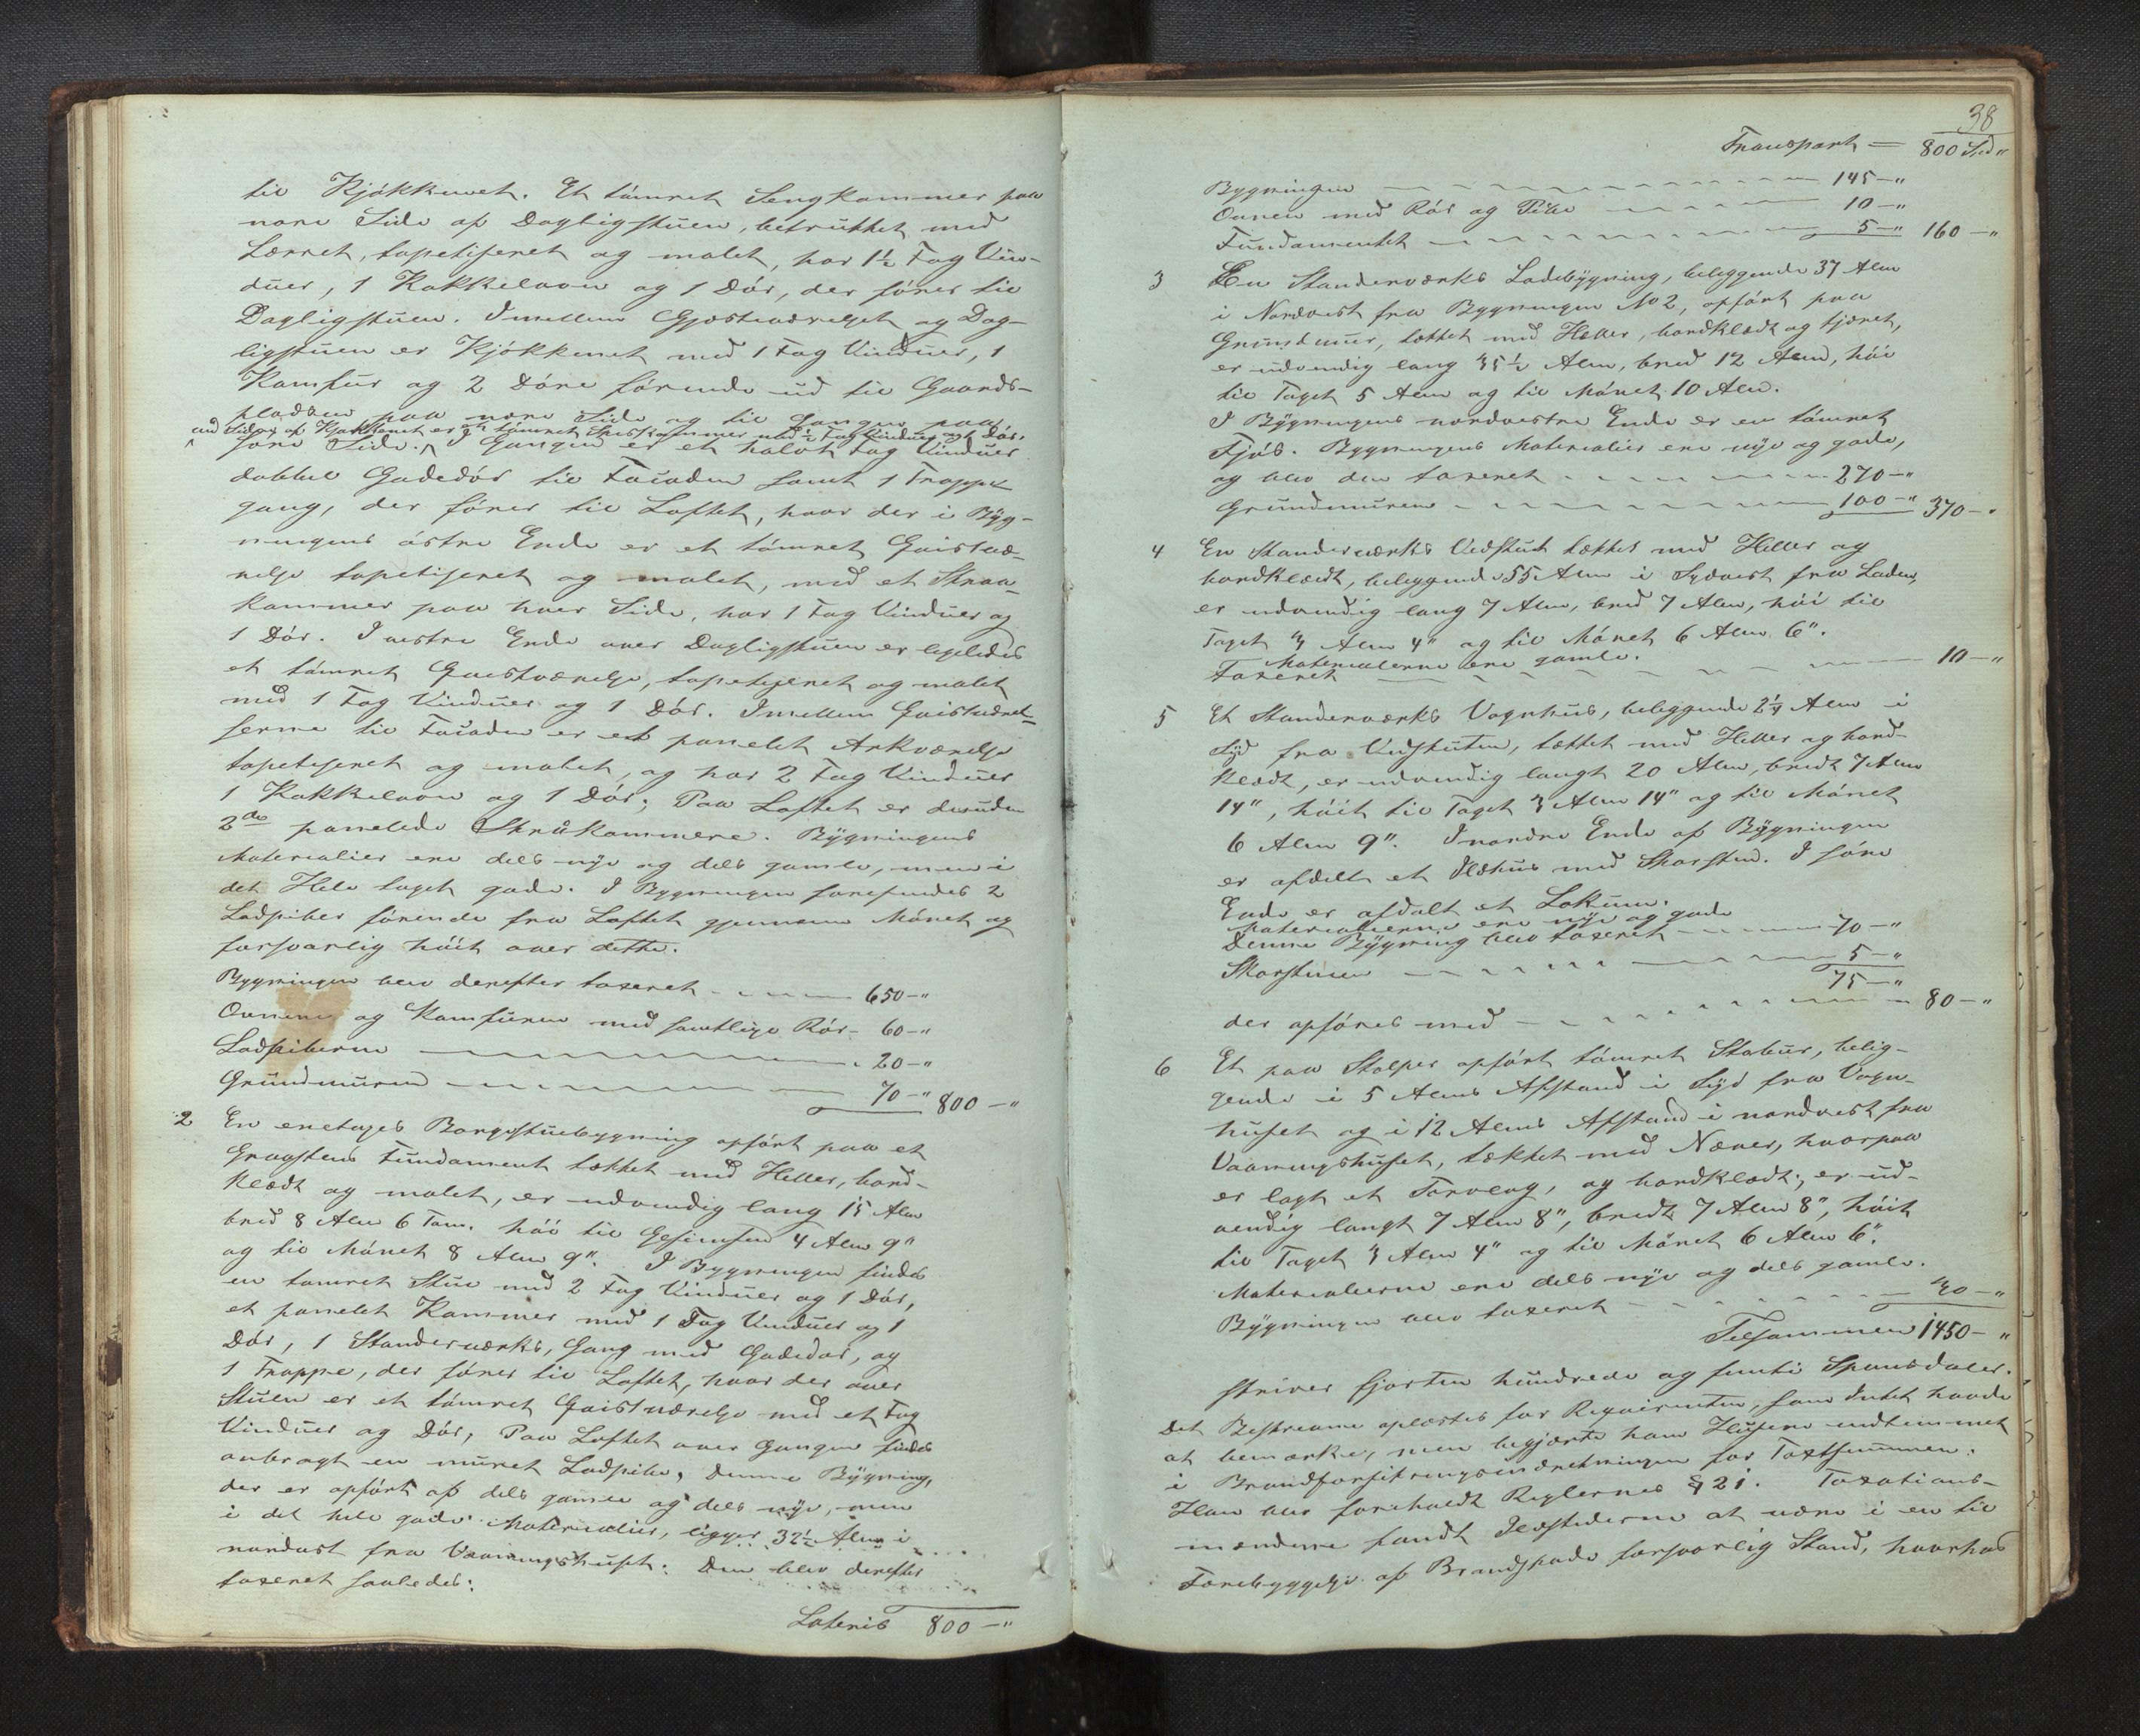 til Kjøkkenet. Et tømret Sengkammer paa
nore Side af Dagligstuen, betrukket med
Lærret, tapetiseret og malet, har 1½ Fag Vin-
duer, 1 Kakkelovn og 1 Dør, der fører til
Dagligstuen. Imellem Gjæsteværelset og Dag-
ligstuen er Kjøkkenet med 1 Fag Vinduer, 1
Komfur og 2 Døre førende ud til Gaards-
pladsen paa nore Side og til Gangen paa
ved Siden af Kjøkkenet er et tømret Spiskammer med ½ Fag Vinduer og 1 Dør.
søre Side. I Gangen er et halvt Fag Vinduer
dobbel Gadedør til Facaden samt 1 Trappe-
gang, der fører til Loftet, hvor der i Byg-
ningens østre Ende er et tømret Quistvæ-
relse tapetiseret og malet, med et Skraa-
kammer paa hver Side, har 1 Fag Vinduer og
1 Dør. I vestre Ende over Dagligstuen er ligeledes
et tømret Quistværelse, tapetiseret og malet
med 1 Fag Vinduer og 1 Dør. Imellem Quistværel-
serne til Facaden er et panelet Arkværelse
tapetiseret og malet, og har 2 Fag Vinduer
1 Kakkelovn og 1 Dør; Paa Loftet er desuden
2de panelede Skråkammere. Bygningens
Materialier ere dels nye og dels gamle, men i
det Hele taget gode. I Bygningen forefindes 2
Ladpiber førende fra Loftet gjennem Mønet og
forsvarlig høit over dette.
Bygningen blev derefter taxeret 650 - "
Ovnene og Komfuren med samtlige Rør - 60 - "
Ladpiberne 20 - "
Grundmuren 70 - " 800 - "
2 En enetages Borgestuebygning opført paa et
Graastens Fundament tækket med Heller, bord-
klædt og malet, er udvendig lang 15 Alen
bred 8 Alen 6 Tom. høi til Gesimsen 4 Alen 9"
og til Mønet 8 Alen 9". I Bygningen findes
en tømret Stue med 2 Fag Vinduer og 1 Dør,
et panelet Kammer med 1 Fag Vinduer og 1
Dør, 1 Standerværks, Gang med Gadedør, og
1 Trappe, der fører til Loftet, hvor der over
Stuen er et tømret Quistværelse med et Fag
Vinduer og Dør, Paa Loftet over Gangen findes
anbragt en muret Ladpibe, Denne Bygning,
der er opført af dels gamle og dels nye, men
i det hele gode Materialier, ligger 32½ Alen i
nordost fra Vaaningshuset: Den blev derefter
taxeret saaledes:
Lateris 800 - "
38
Transport = 800 Spd "
Bygningen 145 - "
Ovnen med Rør og Pibe 10 - "
Fundamentet 5 - " 160 - "
3 En Standerværks Ladebygning, beliggende 37 Alen
i Nordvest fra Bygningen No 2, opført paa
Grundmuur, tækket med Heller, bordklædt og tjæret,
er udvendig lang 35½ Alen, bred 12 Alen, høi
til Taget 5 Alen og til Mønet 10 Alen.
I Bygningens nordvestre Ende er en tømret
Fjøs. Bygningens Materialier ere nye og gode,
og blev den taxeret 270 - "
Grundmuren 100 - " 370 - "
4 En Standerværks Vedskut tækket med Heller og
bordklædt, beliggende 55 Alen i Sydvest fra Laden,
er udvendig lang 7 Alen, bred 7 Alen, høi til
Taget 3 Alen 4" og til Mønet 6 Alen 6".
Materialierne ere gamle.
Taxeret 10 - "
5 Et Standerværks Vognhus, beliggende 2¼ Alen i
Syd fra Vedskuten, tækket med Heller og bord-
klædt, er udvendig langt 20 Alen, bredt 7 Alen
14", høit til Taget 3 Alen 14" og til Mønet
6 Alen 9". I nordre Ende af Bygningen
er afdelt et Ildhus med Skorsten. I søre
Ende er afdelt et Lokum.
Materialierne ere nye og gode
Denne Bygning blev taxeret 70 - "
Skorstenen 5 - "
75 - "
der opføres med 80 - "
6 Et paa Stolper opført tømret Stabur, belig-
gende i 5 Alens Afstand i Syd fra Vogn-
huset og i 12 Alens Afstand i nordvest fra
Vaaningshuset, tækket med Næver, hvorpaa
er lagt et Torvlag, og bordklædt; er ud-
vendig langt 7 Alen 8", bredt 7 Alen 8", høit
til Taget 3 Alen 4" og til Mønet 6 Alen 6".
Materialierne ere dels nye og dels gamle.
Bygningen blev taxeret 30 - "
Tilsammen 1450 - "
skriver fjorten hundrede og femti Speciedaler.
Det Beskrevne oplæstes for Requirenten, som Intet havde
at bemærke, men begjærte ham Husene indtemmet
i Brandforsikringsindretningen for Taxtsummen.
Han blev foreholdt Reglernes § 21. Taxations-
mændene fandt Ildstederne at være i en til
Forebyggelse af Brandskade forsvarlig Stand, hvorhos